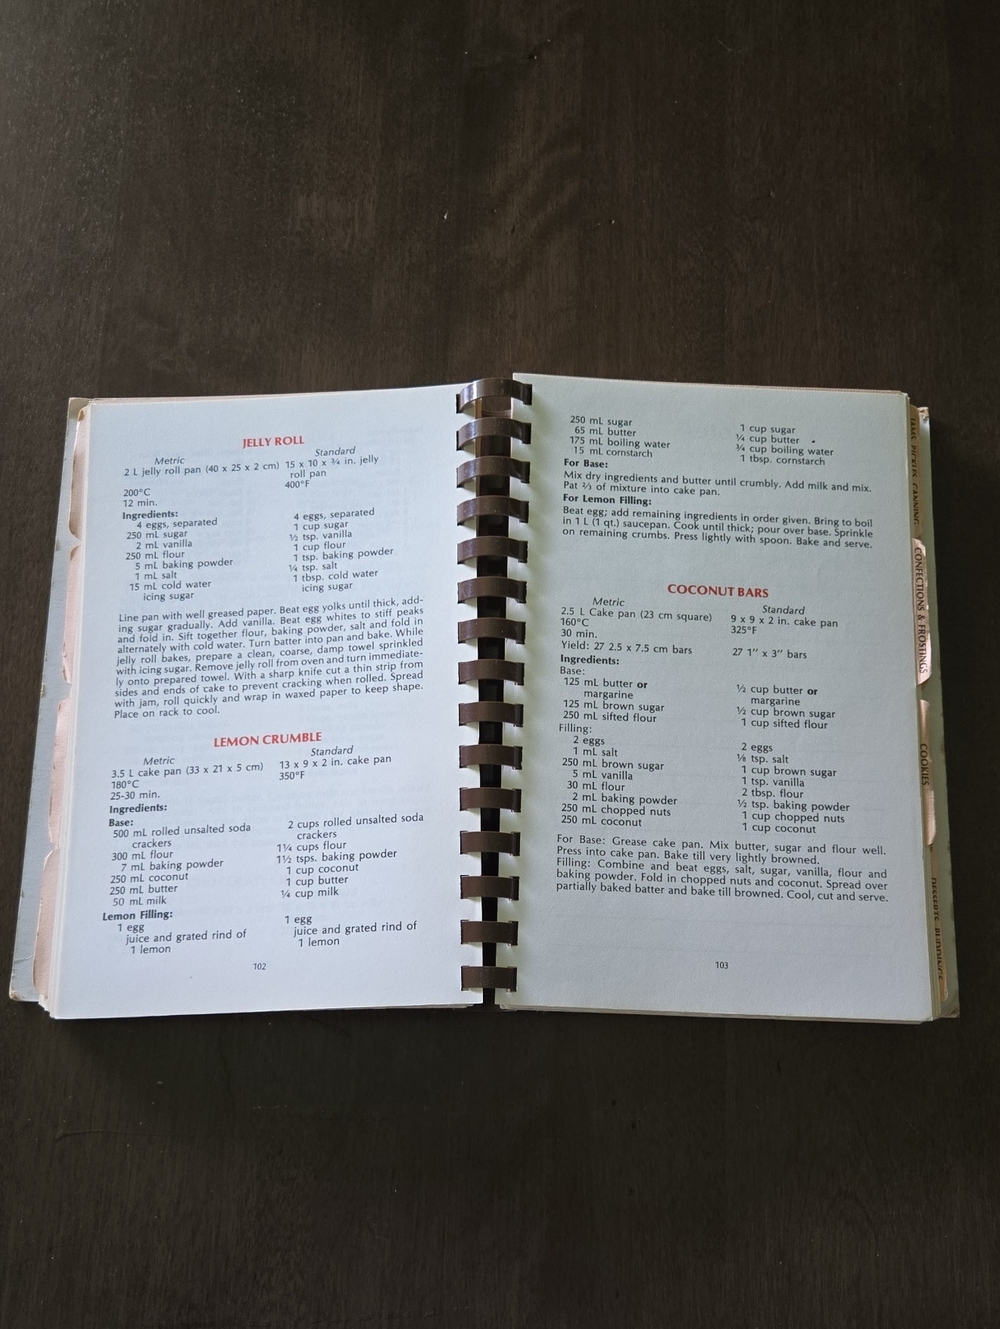 JELLY ROLL
Metric Standard
2 L jelly roll pan (40 x 25 x 2 cm) 15 x 10 x ¾ in. jelly
roll pan
200°C 400°F
12 min.
Ingredients:
4 eggs, separated 4 eggs, separated
250 mL sugar 1 cup sugar
2 mL vanilla ½ tsp. vanilla
250 mL flour 1 cup flour
5 mL baking powder 1 tsp. baking powder
1 mL salt ¼ tsp. salt
15 mL cold water 1 tbsp. cold water
icing sugar icing sugar
Line pan with well greased paper. Beat egg yolks until thick, add-
ing sugar gradually. Add vanilla. Beat egg whites to stiff peaks
and fold in. Sift together flour, baking powder, salt and fold in
alternately with cold water. Turn batter into pan and bake. While
jelly roll bakes, prepare a clean, coarse, damp towel sprinkled
with icing sugar. Remove jelly roll from oven and turn immediate-
ly onto prepared towel. With a sharp knife cut a thin strip from
sides and ends of cake to prevent cracking when rolled. Spread
with jam, roll quickly and wrap in waxed paper to keep shape.
Place on rack to cool.
LEMON CRUMBLE
Metric Standard
3.5 L cake pan (33 x 21 x 5 cm) 13 x 9 x 2 in. cake pan
180°C 350°F
25-30 min.
Ingredients:
Base:
500 mL rolled unsalted soda 2 cups rolled unsalted soda
crackers crackers
300 mL flour 1¼ cups flour
7 mL baking powder 1½ tsps. baking powder
250 mL coconut 1 cup coconut
250 mL butter 1 cup butter
50 mL milk ¼ cup milk
Lemon Filling:
1 egg 1 egg
juice and grated rind of juice and grated rind of
1 lemon 1 lemon
102
250 mL sugar 1 cup sugar
65 mL butter ¼ cup butter
175 mL boiling water ¾ cup boiling water
15 mL cornstarch 1 tbsp. cornstarch
For Base:
Mix dry ingredients and butter until crumbly. Add milk and mix.
Pat ⅔ of mixture into cake pan.
For Lemon Filling:
Beat egg; add remaining ingredients in order given. Bring to boil
in 1 L (1 qt.) saucepan. Cook until thick; pour over base. Sprinkle
on remaining crumbs. Press lightly with spoon. Bake and serve.
COCONUT BARS
Metric Standard
2.5 L Cake pan (23 cm square) 9 x 9 x 2 in. cake pan
160°C 325°F
30 min.
Yield: 27 2.5 x 7.5 cm bars 27 1" x 3" bars
Ingredients:
Base:
125 mL butter or ½ cup butter or
margarine margarine
125 mL brown sugar ½ cup brown sugar
250 mL sifted flour 1 cup sifted flour
Filling:
2 eggs 2 eggs
1 mL salt ⅛ tsp. salt
250 mL brown sugar 1 cup brown sugar
5 mL vanilla 1 tsp. vanilla
30 mL flour 2 tbsp. flour
2 mL baking powder ½ tsp. baking powder
250 mL chopped nuts 1 cup chopped nuts
250 mL coconut 1 cup coconut
For Base: Grease cake pan. Mix butter, sugar and flour well.
Press into cake pan. Bake till very lightly browned.
Filling: Combine and beat eggs, salt, sugar, vanilla, flour and
baking powder. Fold in chopped nuts and coconut. Spread over
partially baked batter and bake till browned. Cool, cut and serve.
103
CONFECTIONS & FROSTINGS
COOKIES